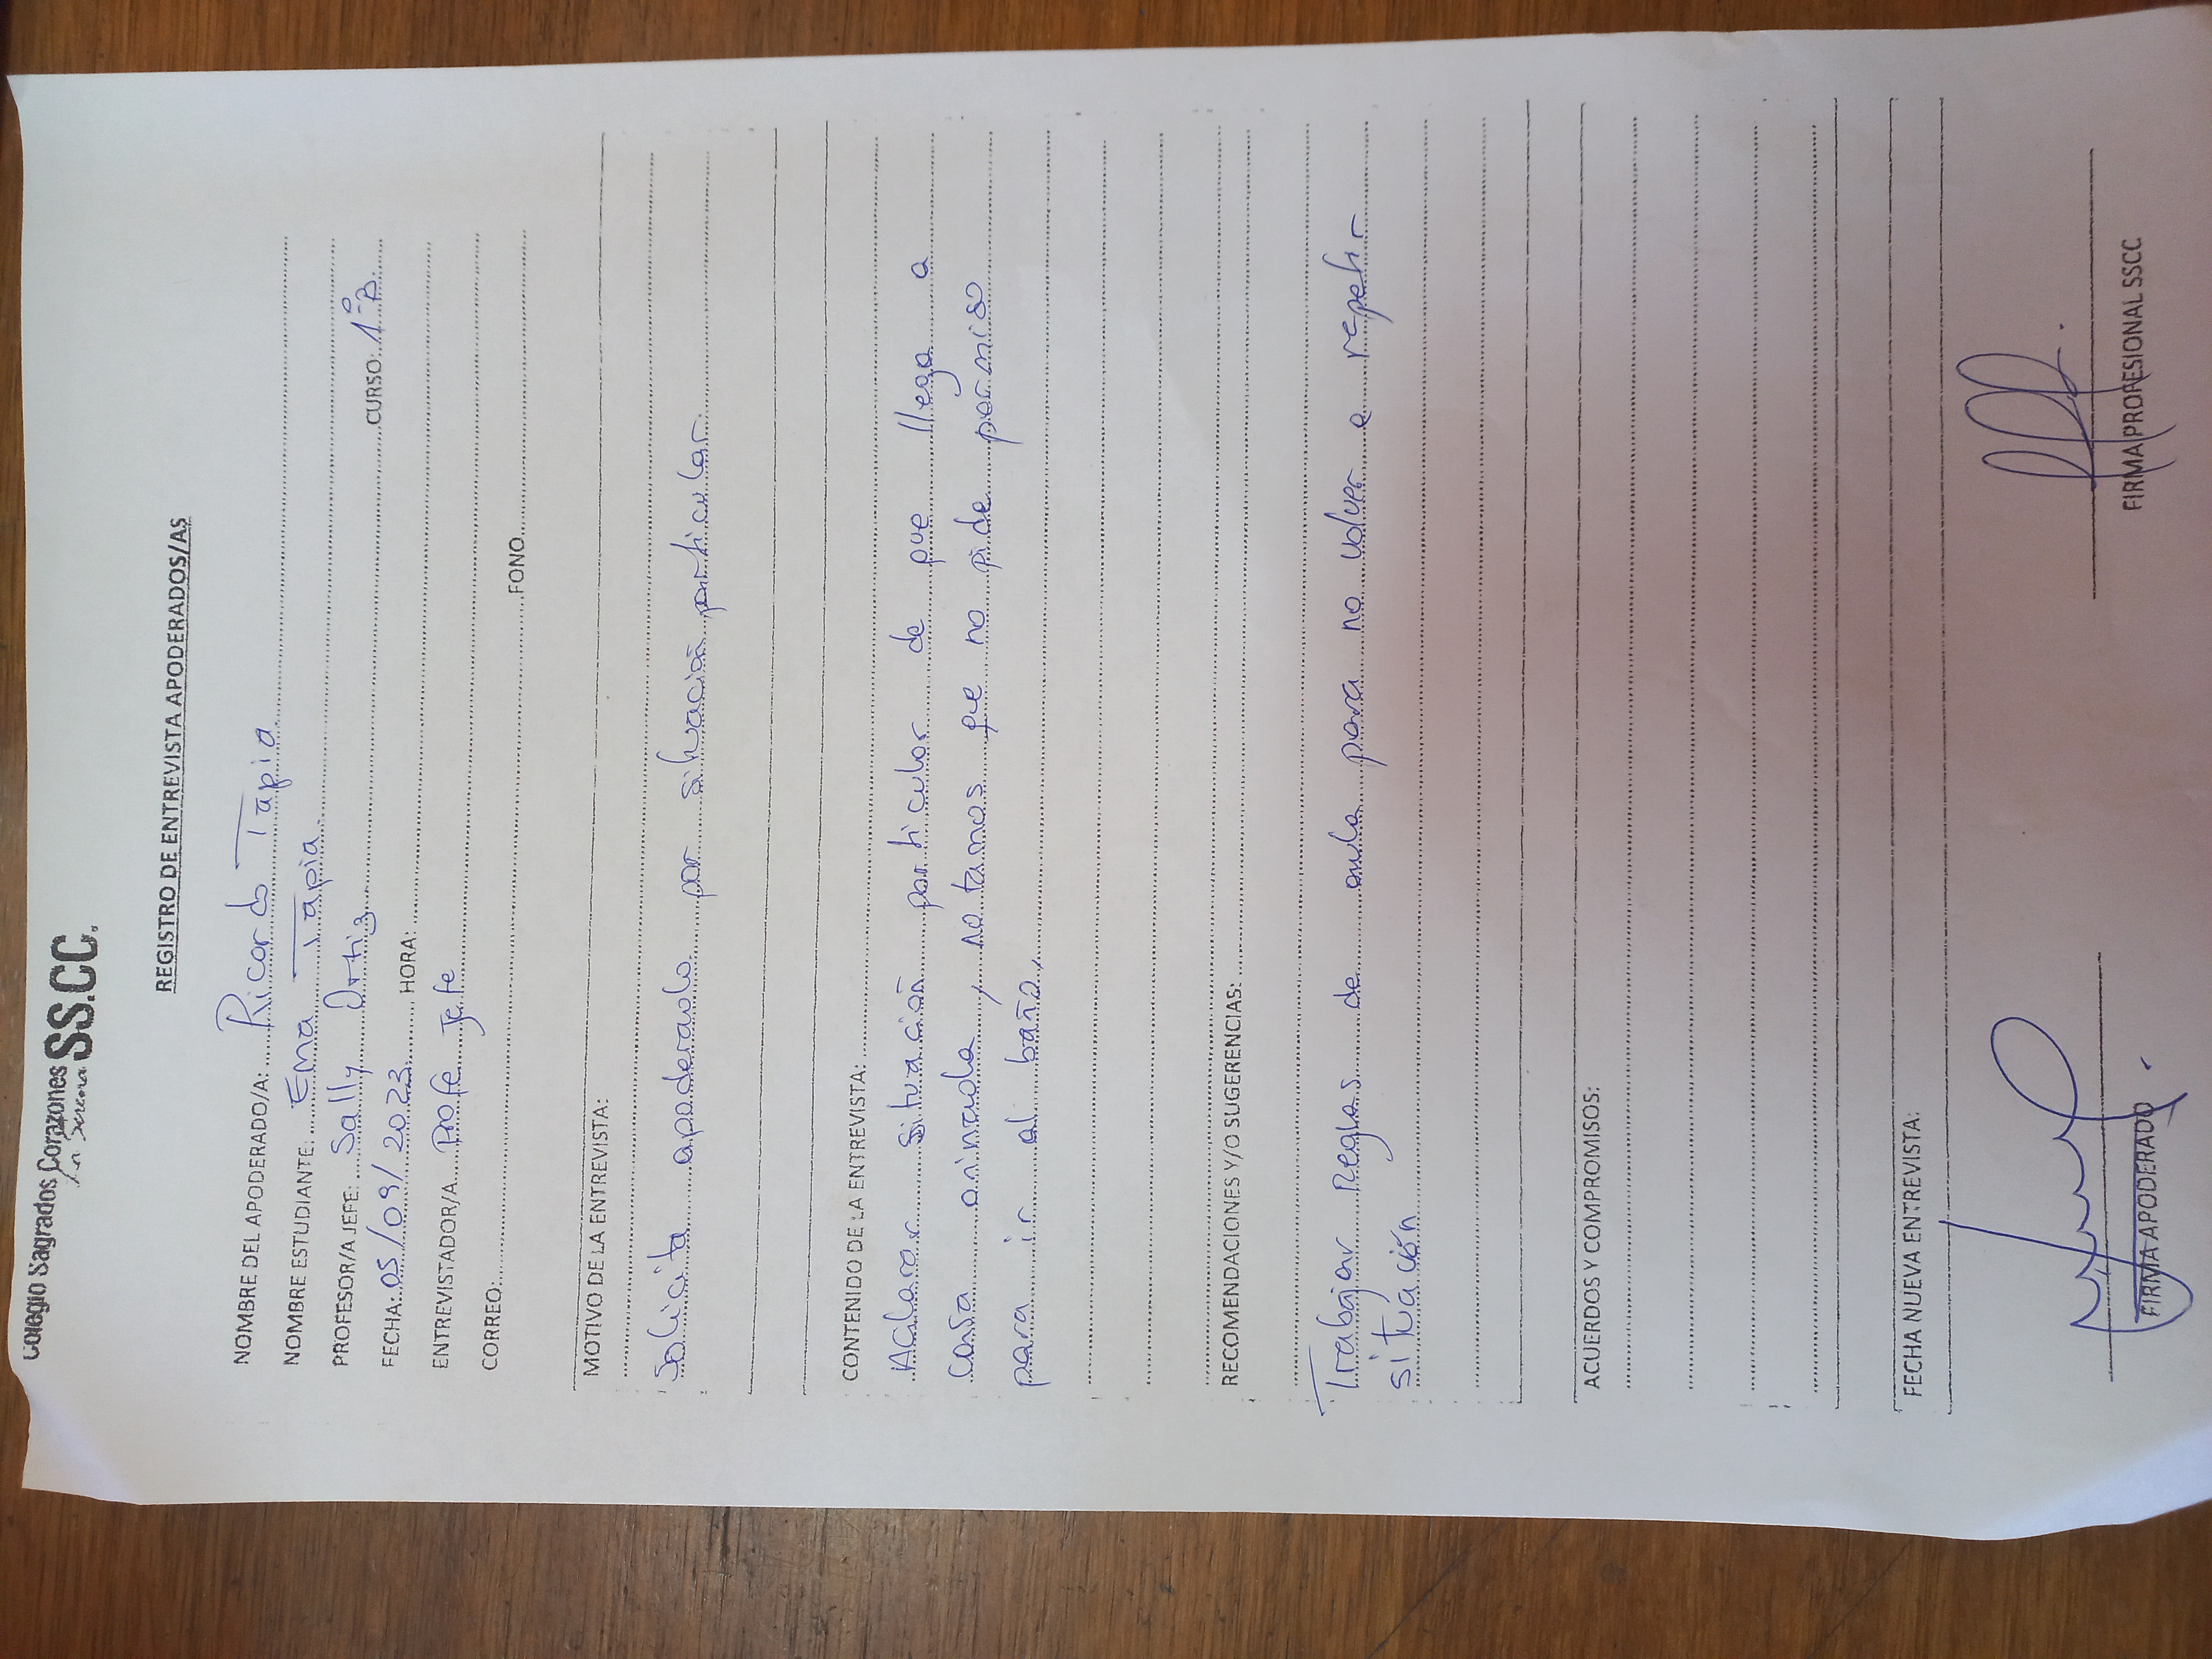 Colegio Sagrados Corazones SS.CC.
La Serena
REGISTRO DE ENTREVISTA APODERADOS/AS
NOMBRE DEL APODERADO/A: Ricardo Tapia
NOMBRE ESTUDIANTE: Ema Tapia
PROFESOR/A JEFE: Sally Ortiz CURSO: 1°B
FECHA: 05/09/2023 HORA:
ENTREVISTADOR/A Profe Jefe
CORREO: FONO
MOTIVO DE LA ENTREVISTA:
Solicita apoderado por situación particular.
CONTENIDO DE LA ENTREVISTA:
Aclarar situación particular de que llega a
casa orinada, notamos que no pide permiso
para ir al baño.
RECOMENDACIONES Y/O SUGERENCIAS:
Trabajar Reglas de aula para no volver a repetir
situación
ACUERDOS Y COMPROMISOS:
FECHA NUEVA ENTREVISTA:
FIRMA APODERADO FIRMA PROFESIONAL SSCC